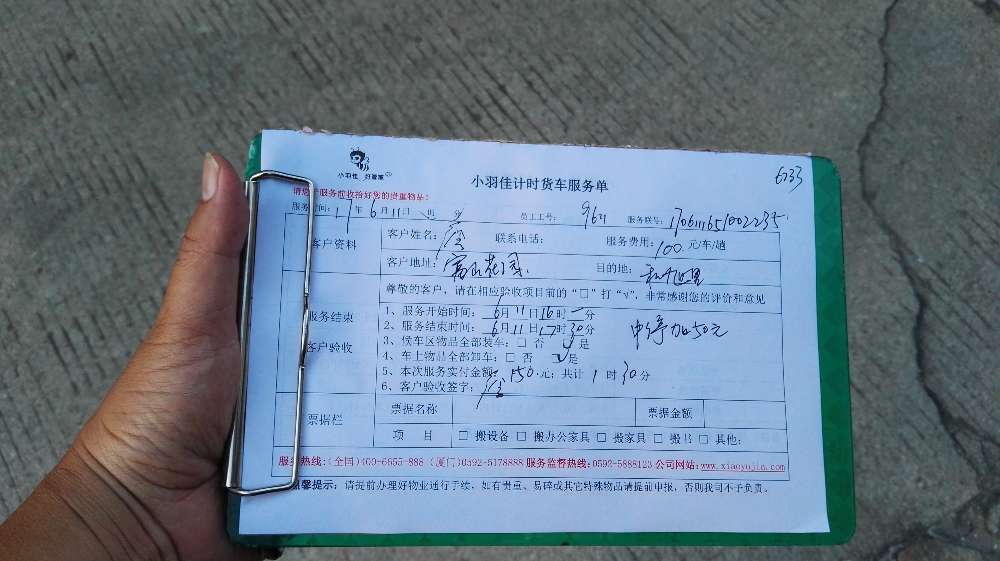 6733
小羽佳 好管家
小羽佳计时货车服务单
请您于服务前收拾好您的贵重物品！
服务时间：17年6月11日 员工工号： 服务联号：
客户资料
客户姓名： 联系电话： 服务费用：100元/车/趟
客户地址：富山花园 目的地：
尊敬的客户，请在相应验收项目前的“□”打“√”，非常感谢您的评价和意见
服务结束
客户验收
1、服务开始时间：6月11日16时 分
2、服务结束时间：6月11日17时30分
中停加50元
3、候车区物品全部装车：□ 否 √是
4、车上物品全部卸车：□ 否 √是
5、本次服务实付金额：150元；共计1时30分
6、客户验收签字：
票据栏
票据名称 票据金额
项 目 □ 搬设备 □ 搬办公家具 □ 搬家具 □ 搬书 □ 其他：
服务热线：(全国)400-6655-888 (厦门)0592-5178888 服务监督热线：0592-5888123 公司网站：www.xiaoyujia.com
温馨提示：请提前办理好物业通行手续，如有贵重、易碎或其它特殊物品请提前申报，否则我司不予负责。